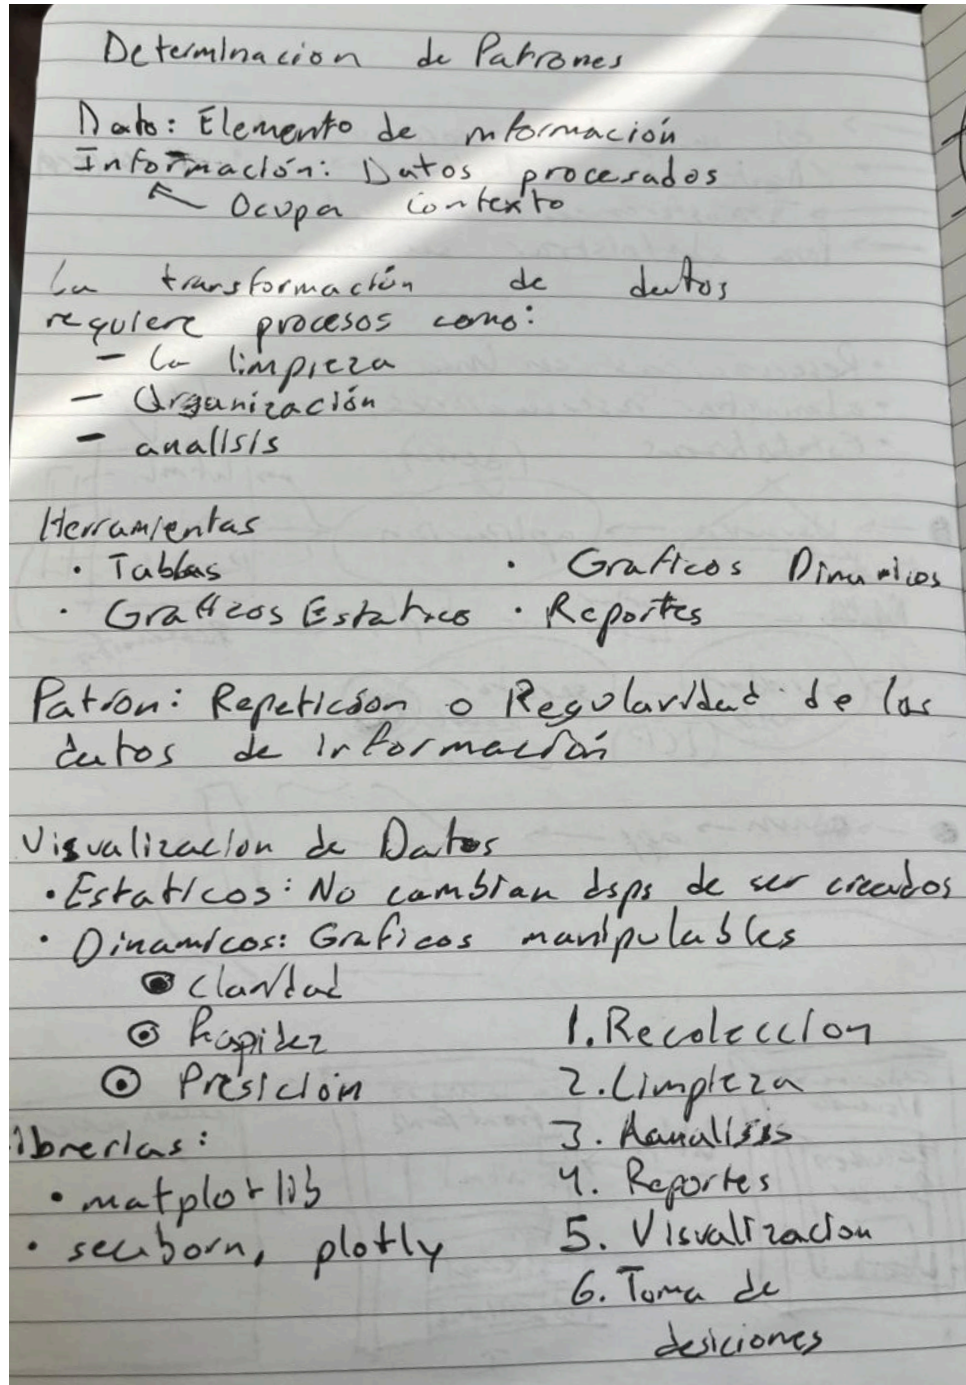 Determinacion de Patrones
Dato: Elemento de información
Información: Datos procesados
Ocupa contexto
La transformación de datos
requiere procesos como:
- La limpieza
- Organización
- analisis
Herramientas
· Tablas
· Graficos Estatico
· Graficos Dinamicos
· Reportes
Patron: Repeticion o Regularidad de los
datos de información
Visualizacion de Datos
· Estaticos: No cambian dsps de ser creados
· Dinamicos: Graficos manipulables
Claridad
Rapidez
Presición
librerias:
· matplotlib
· seaborn, plotly
1. Recoleccion
2. Limpieza
3. Aanalisis
4. Reportes
5. Visualizacion
6. Toma de
desiciones